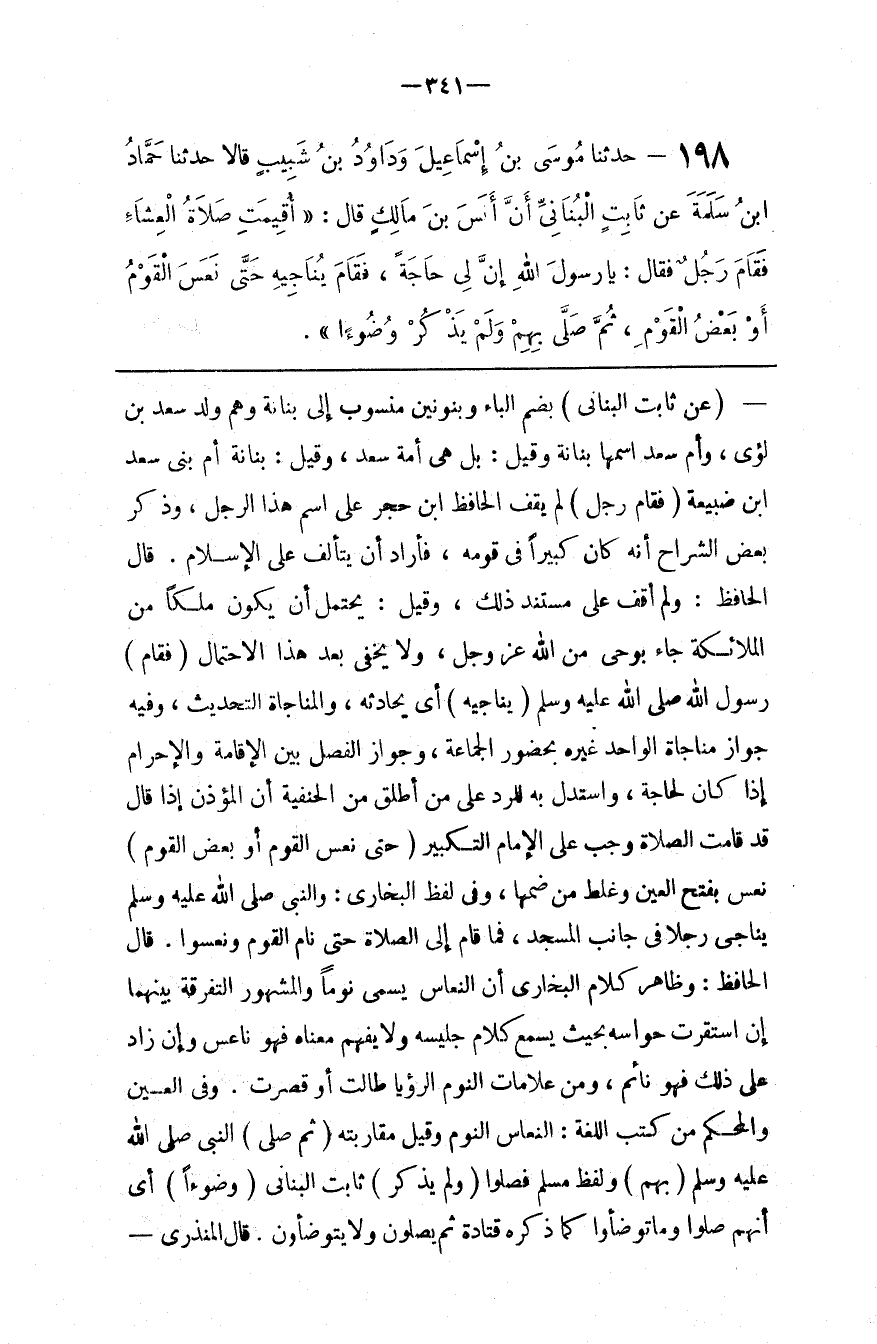 —٣٤١—
١٩٨ — حدثنا مُوسَى بنُ إِسْمَاعِيلَ وَدَاوُدُ بنُ شَبِيبٍ قالا حدثنا حَمَّادُ
ابنُ سَلَمَةَ عن ثَابِتٍ الْبُنَانِيِّ أَنَّ أَنَسَ بنَ مَالِكٍ قال : « أُقِيمَتِ صَلَاةُ الْعِشَاءِ
فَقَامَ رَجُلٌ فقال : يارسولَ اللهِ إنَّ لِى حَاجَةً ، فَقَامَ يُنَاجِيهِ حَتَّى نَعَسَ الْقَوْمُ
أَوْ بَعْضُ الْقَوْمِ ، ثُمَّ صَلَّى بِهِمْ وَلَمْ يَذْكُرْ وُضُوءًا » .
— (عن ثابت البنانى) بضم الباء وبنونين منسوب إلى بنانة وهم ولد سعد بن
لؤى ، وأم سعد اسمها بنانة وقيل : بل هى أمة سعد ، وقيل : بنانة أم بنى سعد
ابن ضبيعة ( فقام رجل ) لم يقف الحافظ ابن حجر على اسم هذا الرجل ، وذكر
بعض الشراح أنه كان كبيراً فى قومه ، فأراد أن يتألف على الإسلام . قال
الحافظ : ولم أقف على مستند ذلك ، وقيل : يحتمل أن يكون ملكاً من
الملائكة جاء بوحى من الله عز وجل ، ولا يخفى بعد هذا الاحتمال ( فقام )
رسول الله صلى الله عليه وسلم ( يناجيه ) أى يحادثه ، والمناجاة التحديث ، وفيه
جواز مناجاة الواحد غيره بحضور الجماعة ، وجواز الفصل بين الإقامة والإحرام
إذا كان لحاجة ، واستدل به للرد على من أطلق من الحنفية أن المؤذن إذا قال
قد قامت الصلاة وجب على الإمام التكبير ( حتى نعس القوم أو بعض القوم )
نعس بفتح العين وغلط من ضمها ، وفى لفظ البخارى : والنبى صلى الله عليه وسلم
يناجى رجلا فى جانب المسجد ، فما قام إلى الصلاة حتى نام القوم ونعسوا . قال
الحافظ : وظاهر كلام البخارى أن النعاس يسمى نوماً والمشهور التفرقة بينهما
إن استقرت حواسه بحيث يسمع كلام جليسه ولايفهم معناه فهو ناعس وإن زاد
على ذلك فهو نائم ، ومن علامات النوم الرؤيا طالت أو قصرت . وفى العين
والمحكم من كتب اللغة : النعاس النوم وقيل مقاربته ( ثم صلى ) النبى صلى الله
عليه وسلم ( بهم ) ولفظ مسلم فصلوا ( ولم يذكر ) ثابت البنانى ( وضوءاً ) أى
أنهم صلوا وماتوضأوا كما ذكره قتادة ثم يصلون ولايتوضأون . قال المنذرى —